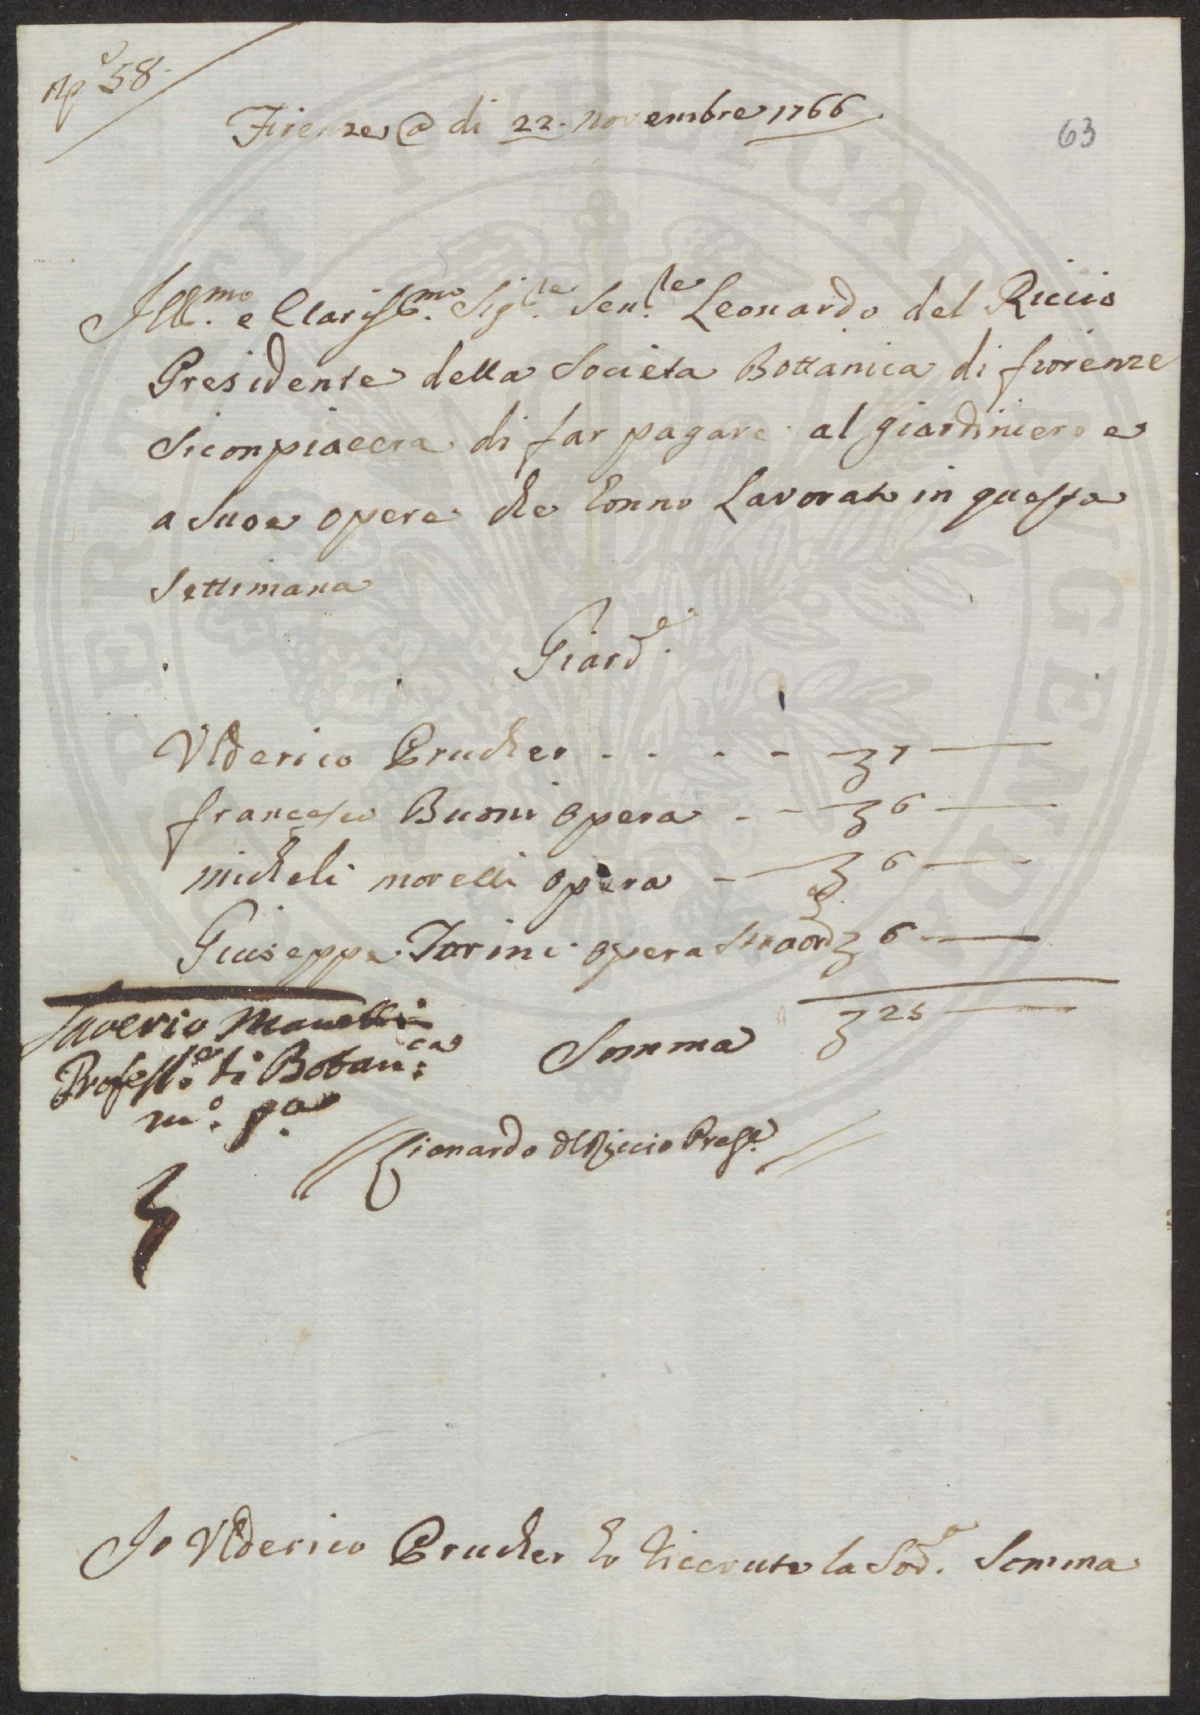 Ap.e 58.
63
Firenze @ di 22. novembre 1766
Ill.mo e Clariss.mo Sig.re Sen.re Leonardo del Riccio
Presidente della Societa Bottanica di fiorenze
Siconpiacera di far pagare al giardiniero e
a Suoe opere che Ennno Lavorato in questa
Settimana
Giard.e
Vlderico Prucher . . . - - 7 —
francesco Buoni opera . - - 6 —
micheli morelli opera - — 6 —
Giuseppe Torini opera Straord. 6 —
Somma 25 —
Saverio Manetti
Profess.re di Botan.ca
m.o p.a
Lionardo del Riccio Pres.e
Io Vlderico Prucher ho Riceuuto la Sod.a Somma
PERITI PUBLICAE AUGENDAE